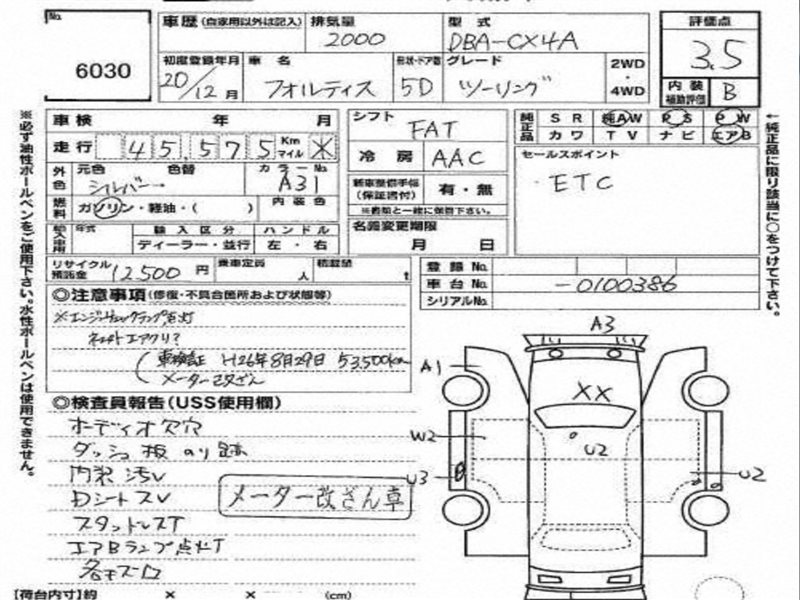 No.
6030
車歴(自家用以外は記入)
排気量
2000
型式
DBA-CX4A
評価点
3.5
初度登録年月
20/12月
車名
フォルティス
形状・ドア数
5D
グレード
ツーリング
2WD
・
4WD
内装
補助評価
B
車検 年 月
走行 45,575 Km マイル ※
シフト
FAT
冷房
AAC
純正品
SR 純AW PS PW
カワ TV ナビ エアB
外色
元色
シルバー
色替
カラーNo.
A31
燃料
ガソリン・軽油・( )
内装色
新車整備手帳
(保証書付)
有・無
※書類と一緒に保管下さい。
セールスポイント
・ETC
輸入車用
年式
輸入区分
ディーラー・並行
ハンドル
左・右
名義変更期限
月 日
リサイクル
預託金
12,500円
乗車定員
人
積載量
t
登録No.
車台No. -0100386
シリアルNo.
◎注意事項(修復・不具合箇所および状態等)
※エンジンチェックランプ点灯
エアクリ?
(車検証 H26年8月29日 53,500km
メーター改ざん
◎検査員報告(USS使用欄)
オーディオ欠穴
ダッシュ板 のり跡
内装 汚レ
Dシートスレ
スタッドレスT
エアBランプ点灯
メーター改ざん車
A3
A1
XX
W2
U2
U3
U2
【荷台内寸】約 × × (cm)
※必ず油性ボールペンをご使用下さい。水性ボールペンは使用できません。
←純正品に限り該当に○をつけて下さい。